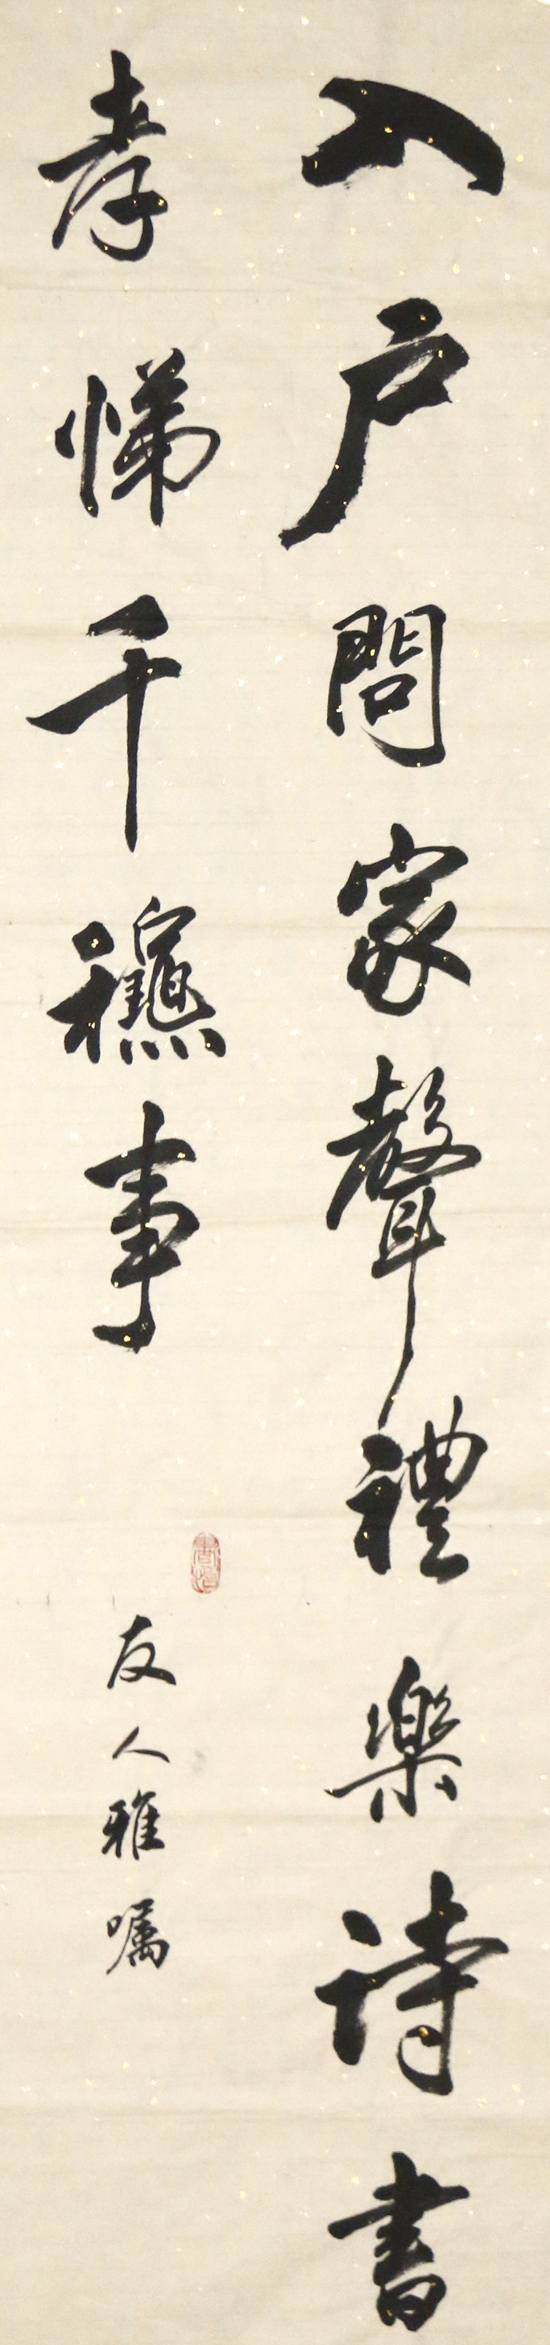 入户問家聲禮樂诗書
孝悌千龝事
友人雅嘱